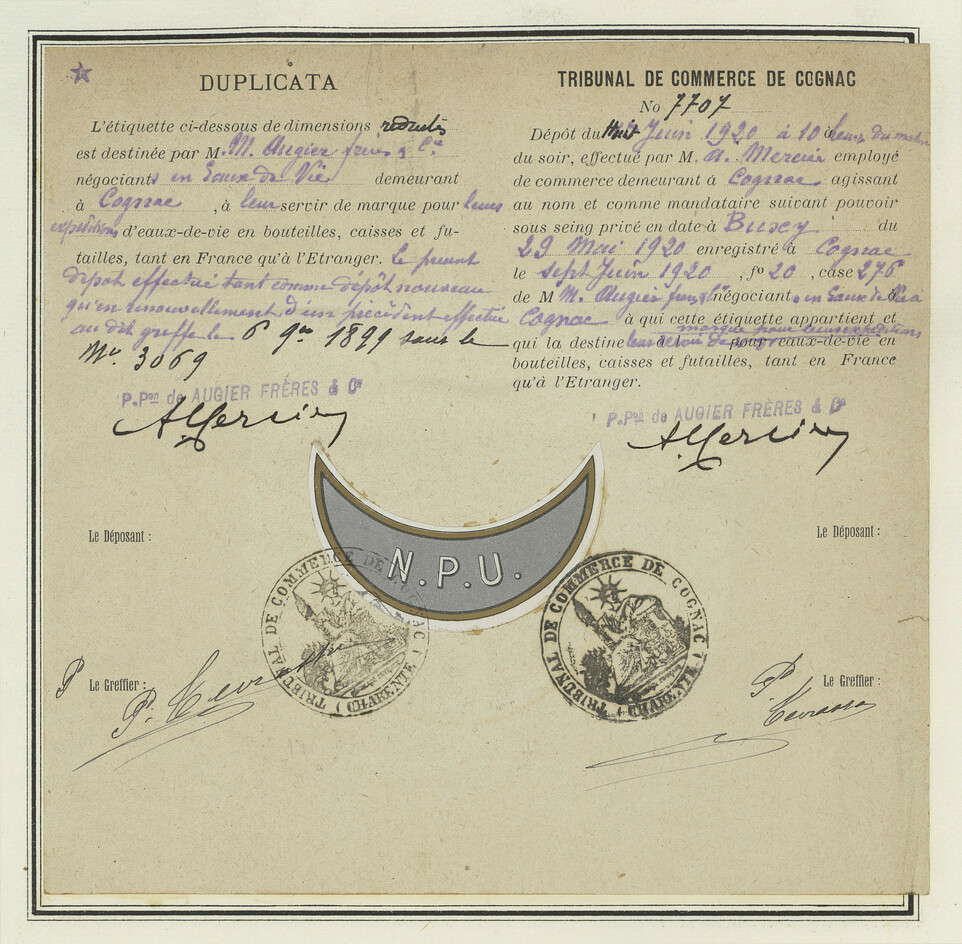 DUPLICATA
L'étiquette ci-dessous de dimensions reduites
est destinée par M. M. Augier frères & Cie
négociants en Eaux de Vie demeurant
à Cognac, à leur servir de marque pour leurs
expéditions d'eaux-de-vie en bouteilles, caisses et fu-
tailles, tant en France qu'à l'Etranger. Le présent
dépot effectué tant comme dépôt nouveau
qu'en renouvellement d'un précédent effectué
au dit greffe le 6 9bre 1899 sous le
No 3069
P. Pon de AUGIER FRÈRES & Cie
A Mercier
Le Déposant :
P Le Greffier :
TRIBUNAL DE COMMERCE DE COGNAC
No 7707
Dépôt du Huit Juin 1920 à 10 heures du matin
du soir, effectué par M. A. Mercier employé
de commerce demeurant à Cognac agissant
au nom et comme mandataire suivant pouvoir
sous seing privé en date à Buscy du
29 Mai 1920 enregistré à Cognac
le sept Juin 1920, fo 20, case 276
de M M. Augier frères négociants en Eaux de Vie à
Cognac à qui cette étiquette appartient et
marque pour leurs expéditions
qui la destine leur servir de eaux-de-vie en
bouteilles, caisses et futailles, tant en France
qu'à l'Etranger.
P. Pon de AUGIER FRÈRES & Cie
A Mercier
Le Déposant :
Le Greffier :
N.P.U.
TRIBUNAL DE COMMERCE DE COGNAC (CHARENTE)
TRIBUNAL DE COMMERCE DE COGNAC (CHARENTE)